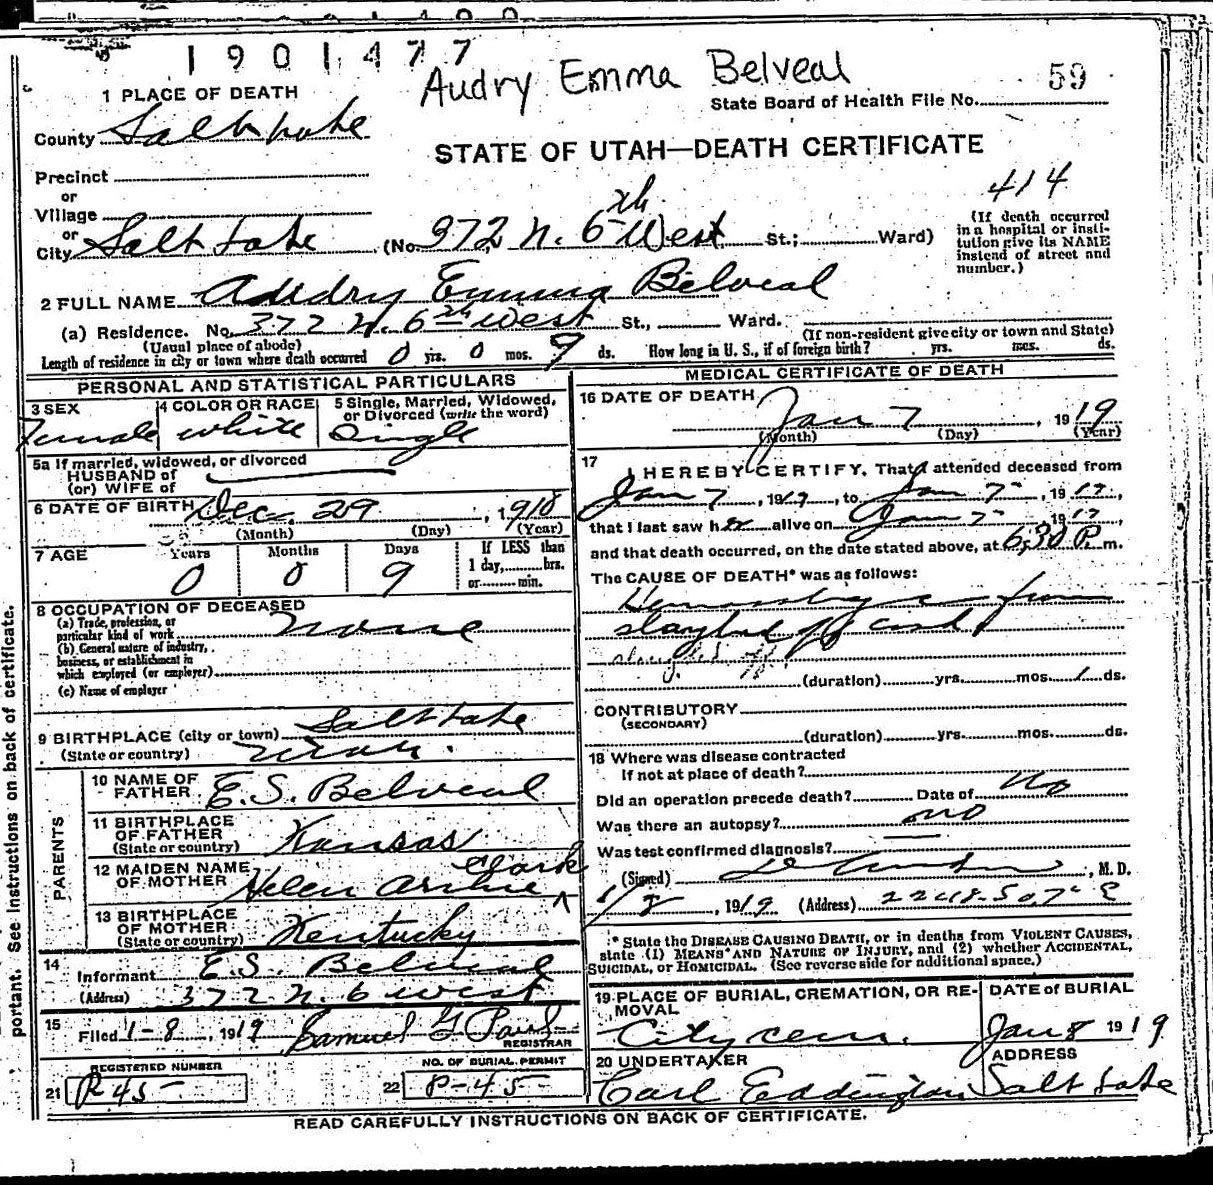 1901477
Audry Emma Belveal
59
State Board of Health File No.
1 PLACE OF DEATH
County Salt Lake
STATE OF UTAH—DEATH CERTIFICATE
Precinct
or
Village
or
City Salt Lake (No. 372 N. 6th West St.; Ward)
414
(If death occurred
in a hospital or insti-
tution give its NAME
instead of street and
number.)
2 FULL NAME Audry Emma Belveal
(a) Residence. No. 372 N. 6th West St., Ward.
(Usual place of abode)
(If non-resident give city or town and State)
Length of residence in city or town where death occurred 0 yrs. 0 mos. 9 ds. How long in U. S., if of foreign birth? yrs. mos. ds.
PERSONAL AND STATISTICAL PARTICULARS
3 SEX
Female
4 COLOR OR RACE
white
5 Single, Married, Widowed,
or Divorced (write the word)
Single
5a If married, widowed, or divorced
HUSBAND of
(or) WIFE of
6 DATE OF BIRTH Dec. 29, 1918
(Month) (Day) (Year)
7 AGE Years Months Days If LESS than
1 day, hrs.
or min.
0 0 9
8 OCCUPATION OF DECEASED
(a) Trade, profession, or
particular kind of work none
(b) General nature of industry,
business, or establishment in
which employed (or employer)
(c) Name of employer
9 BIRTHPLACE (city or town) Salt Lake
(State or country) Utah.
PARENTS
10 NAME OF
FATHER E.S. Belveal
11 BIRTHPLACE
OF FATHER
(State or country) Kansas
12 MAIDEN NAME
OF MOTHER Helen Archie Clark
13 BIRTHPLACE
OF MOTHER
(State or country) Kentucky
14
Informant E.S. Belveal
(Address) 372 N. 6 West
15
Filed 1-8, 1919 Samuel G Paul
REGISTRAR
REGISTERED NUMBER
21 R 45
NO. OF BURIAL PERMIT
22 P-45
MEDICAL CERTIFICATE OF DEATH
16 DATE OF DEATH
Jan 7, 1919
(Month) (Day) (Year)
17
I HEREBY CERTIFY, That I attended deceased from
Jan 7, 1919, to Jan 7, 1919,
that I last saw her alive on Jan 7, 1919,
and that death occurred, on the date stated above, at 6:30 P. m.
The CAUSE OF DEATH* was as follows:
Hemorrhage from
cord
(duration) yrs. mos. 1 ds.
CONTRIBUTORY
(SECONDARY)
(duration) yrs. mos. ds.
18 Where was disease contracted
If not at place of death?
Did an operation precede death? Date of No
Was there an autopsy? no
Was test confirmed diagnosis?
(Signed) , M. D.
1/8, 1919 (Address)
* State the DISEASE CAUSING DEATH, or in deaths from VIOLENT CAUSES,
state (1) MEANS AND NATURE OF INJURY, and (2) whether ACCIDENTAL,
SUICIDAL, or HOMICIDAL. (See reverse side for additional space.)
19 PLACE OF BURIAL, CREMATION, OR RE-
MOVAL
City cem.
DATE of BURIAL
Jan 8 1919
20 UNDERTAKER
Carl Eddington
ADDRESS
Salt Lake
READ CAREFULLY INSTRUCTIONS ON BACK OF CERTIFICATE.
portant. See Instructions on back of certificate.